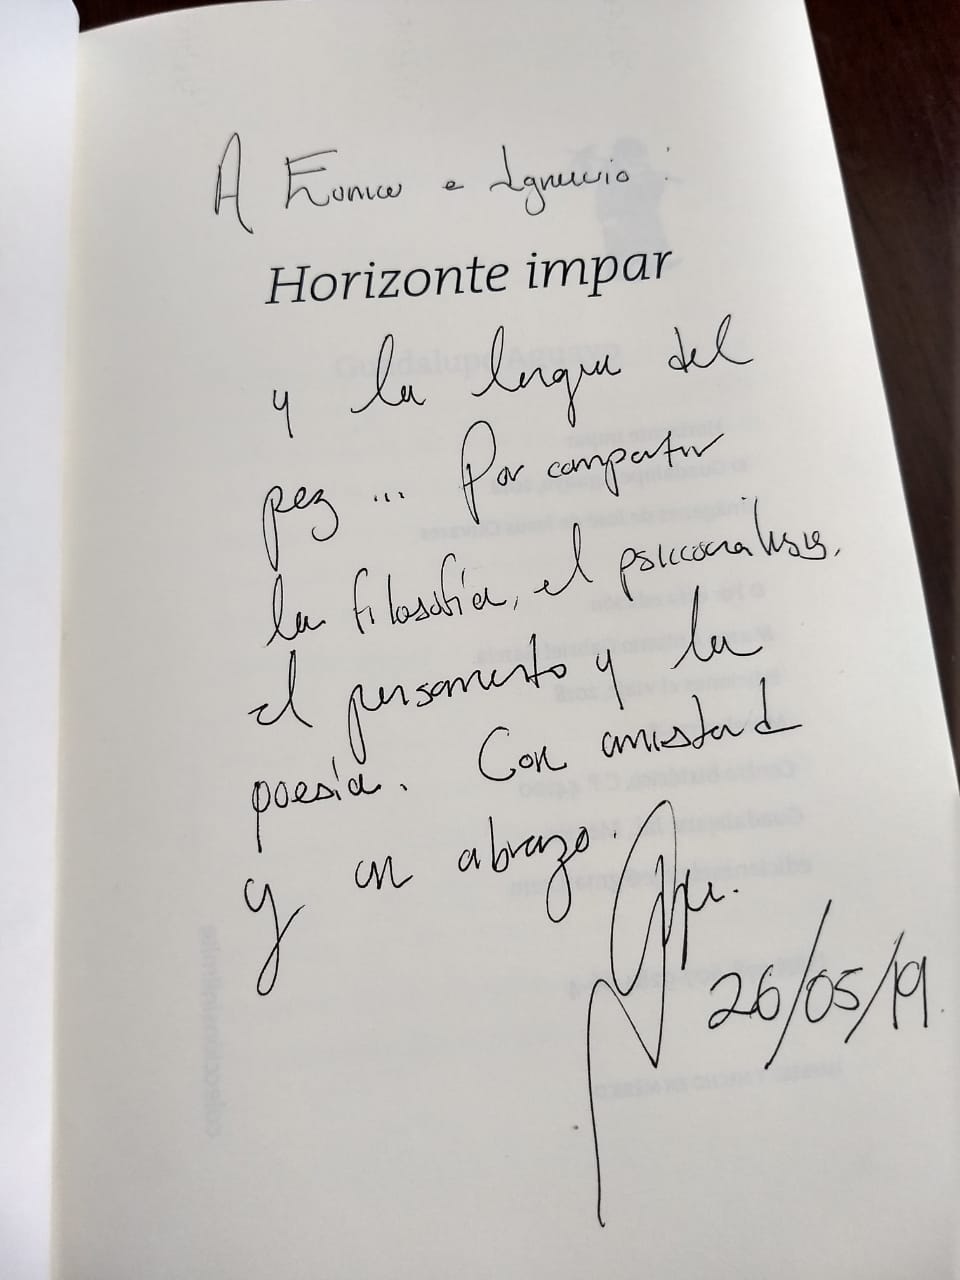 A e Ignacio.
Horizonte impar
y la lengua del
pez ... Por compartir
la filosofía, el psicoanálisis,
el pensamiento y la
poesía. Con amistad
y un abrazo.
26/05/19.